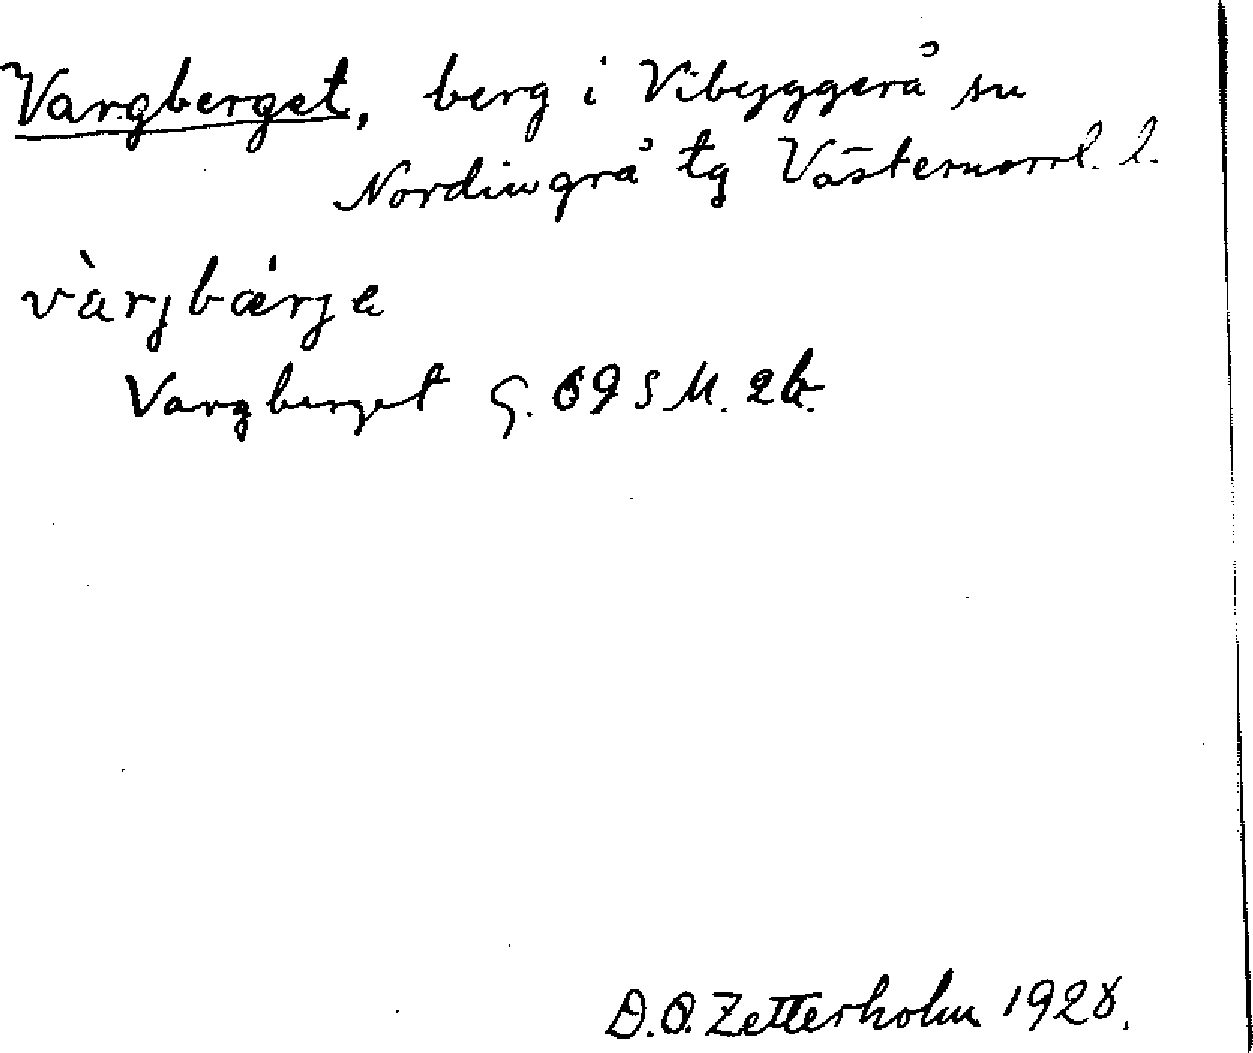 Vargberget, berg i Vibyggerå sn
Nordingrå tg Västernorrl. l.
vàrjbær̍ja
Vargberget G. 69 SM. 2b.
D.O. Zetterholm 1928.